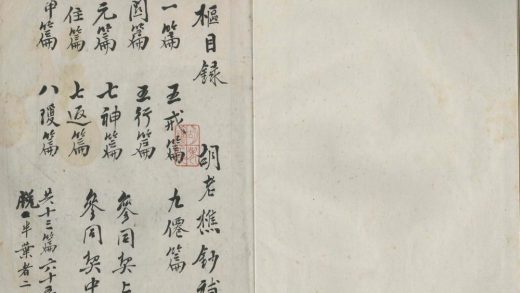 樞目録 胡老樵鈔
一篇 五戒篇 九僊篇
篇 五行篇 參同契上
元篇 七神篇 參同契中
住篇 七返篇
篇 八瓊篇
共十三篇六十五
脱一半葉者二